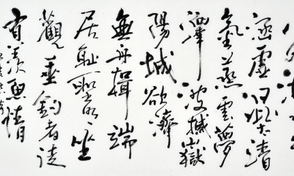 涵虚混太清
氣蒸雲夢
澤波撼嶽
陽城欲濟
無舟楫端
居恥聖明坐
觀垂釣者徒
有羨魚情